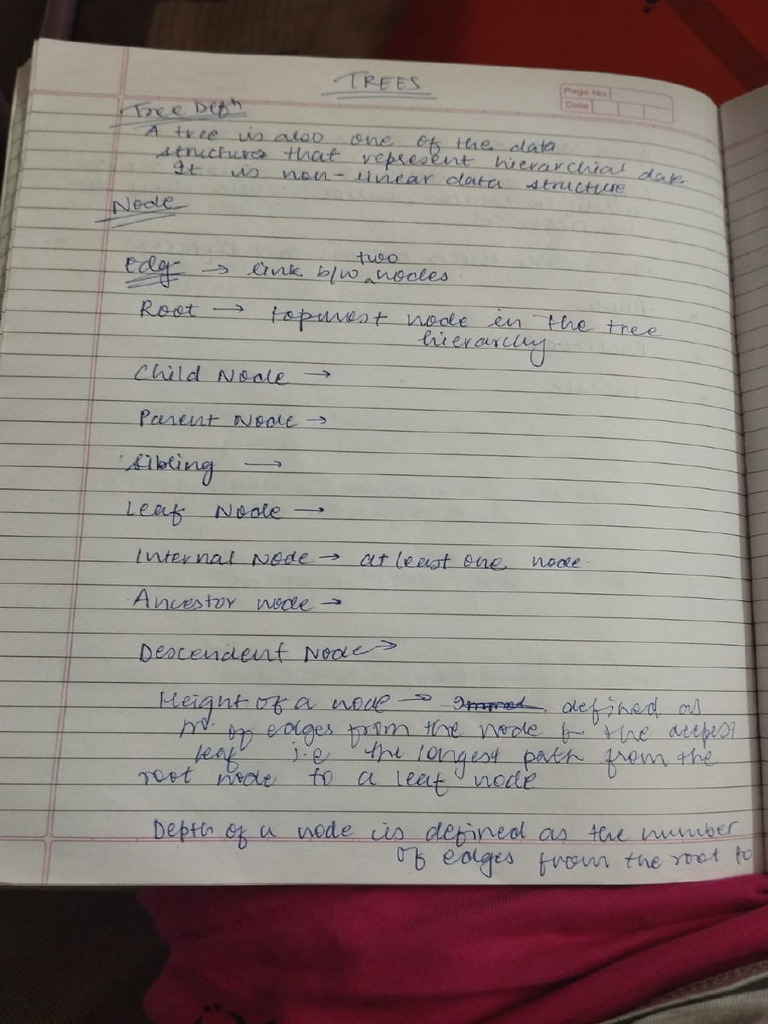 TREES
Page No
Date
Tree Defn
A tree is also one of the data
structures that represent hierarchial data
It is non-linear data structure
Node
Edge → link b/w two nodes.
Root → topmost node in the tree
hierarchy
Child Node →
Parent Node →
Sibling →
Leaf Node →
Internal Node → atleast one node.
Ancestor node →
Descendent Node →
Height of a node → defined as
no. of edges from the node to the deepest
leaf i.e the longest path from the
root node to a leaf node
Depth of a node is defined as the number
of edges from the root to